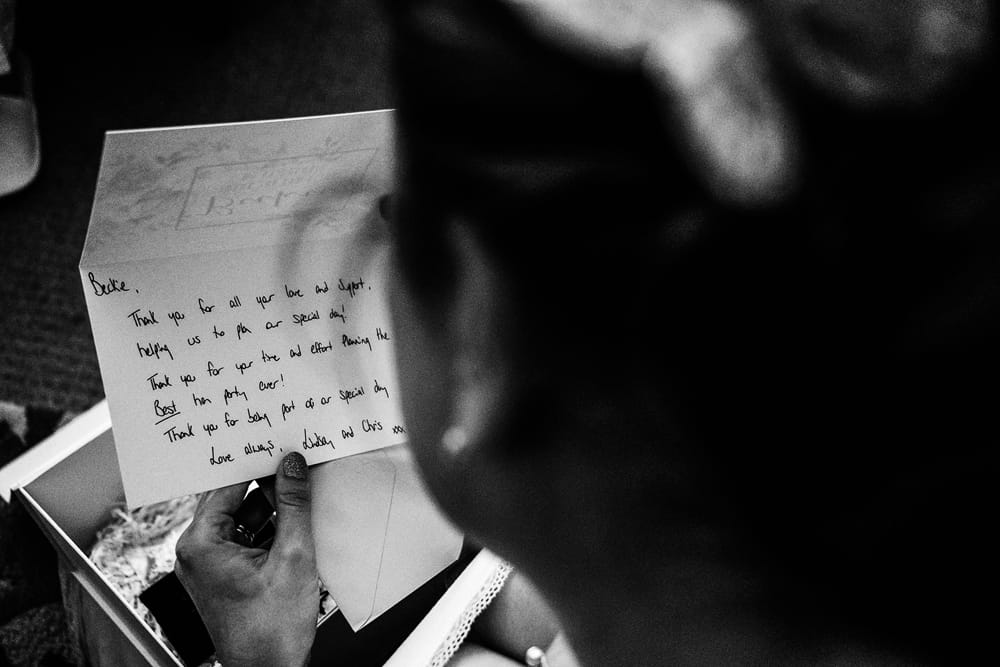 Beckie,
Thank you for all your love and support,
helping us to plan our special day!
Thank you for your time and effort planning the
Best hen party ever!
Thank you for being part of our special day
Love always, Lindsey and Chris xxx